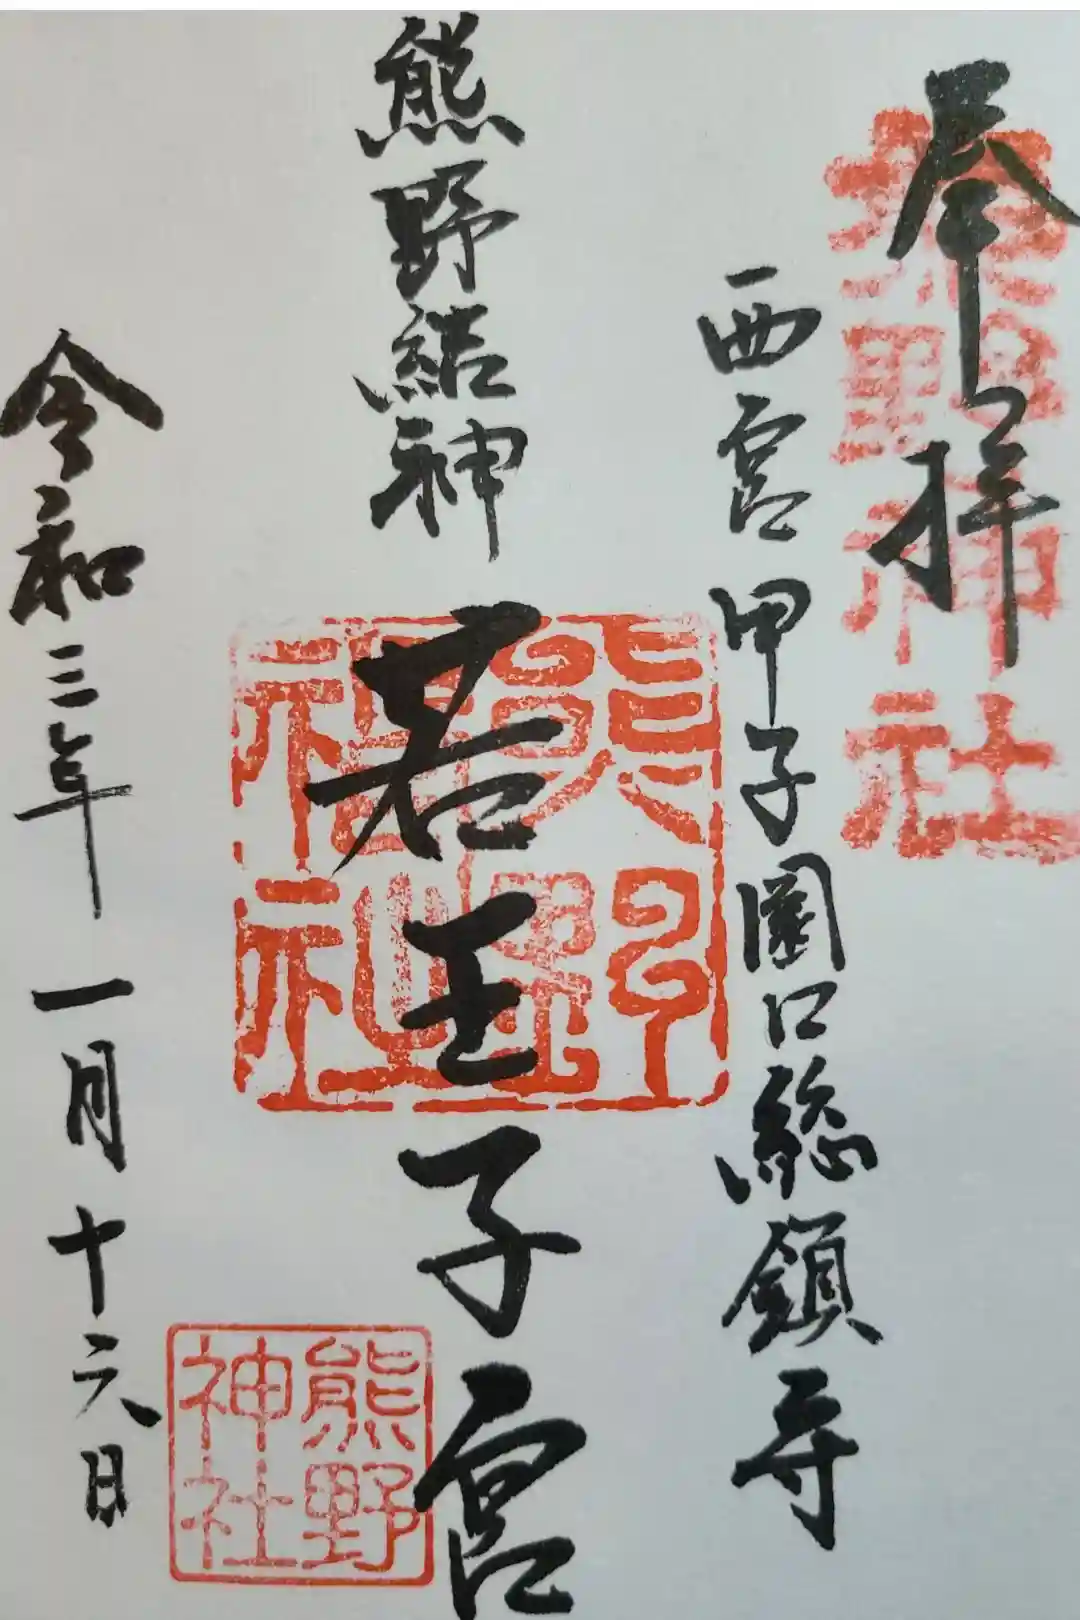 奉拝
熊野神社
西宮甲子園口総鎮守
熊野結神
若王子宮
熊野神社
熊野神社
令和三年一月十六日